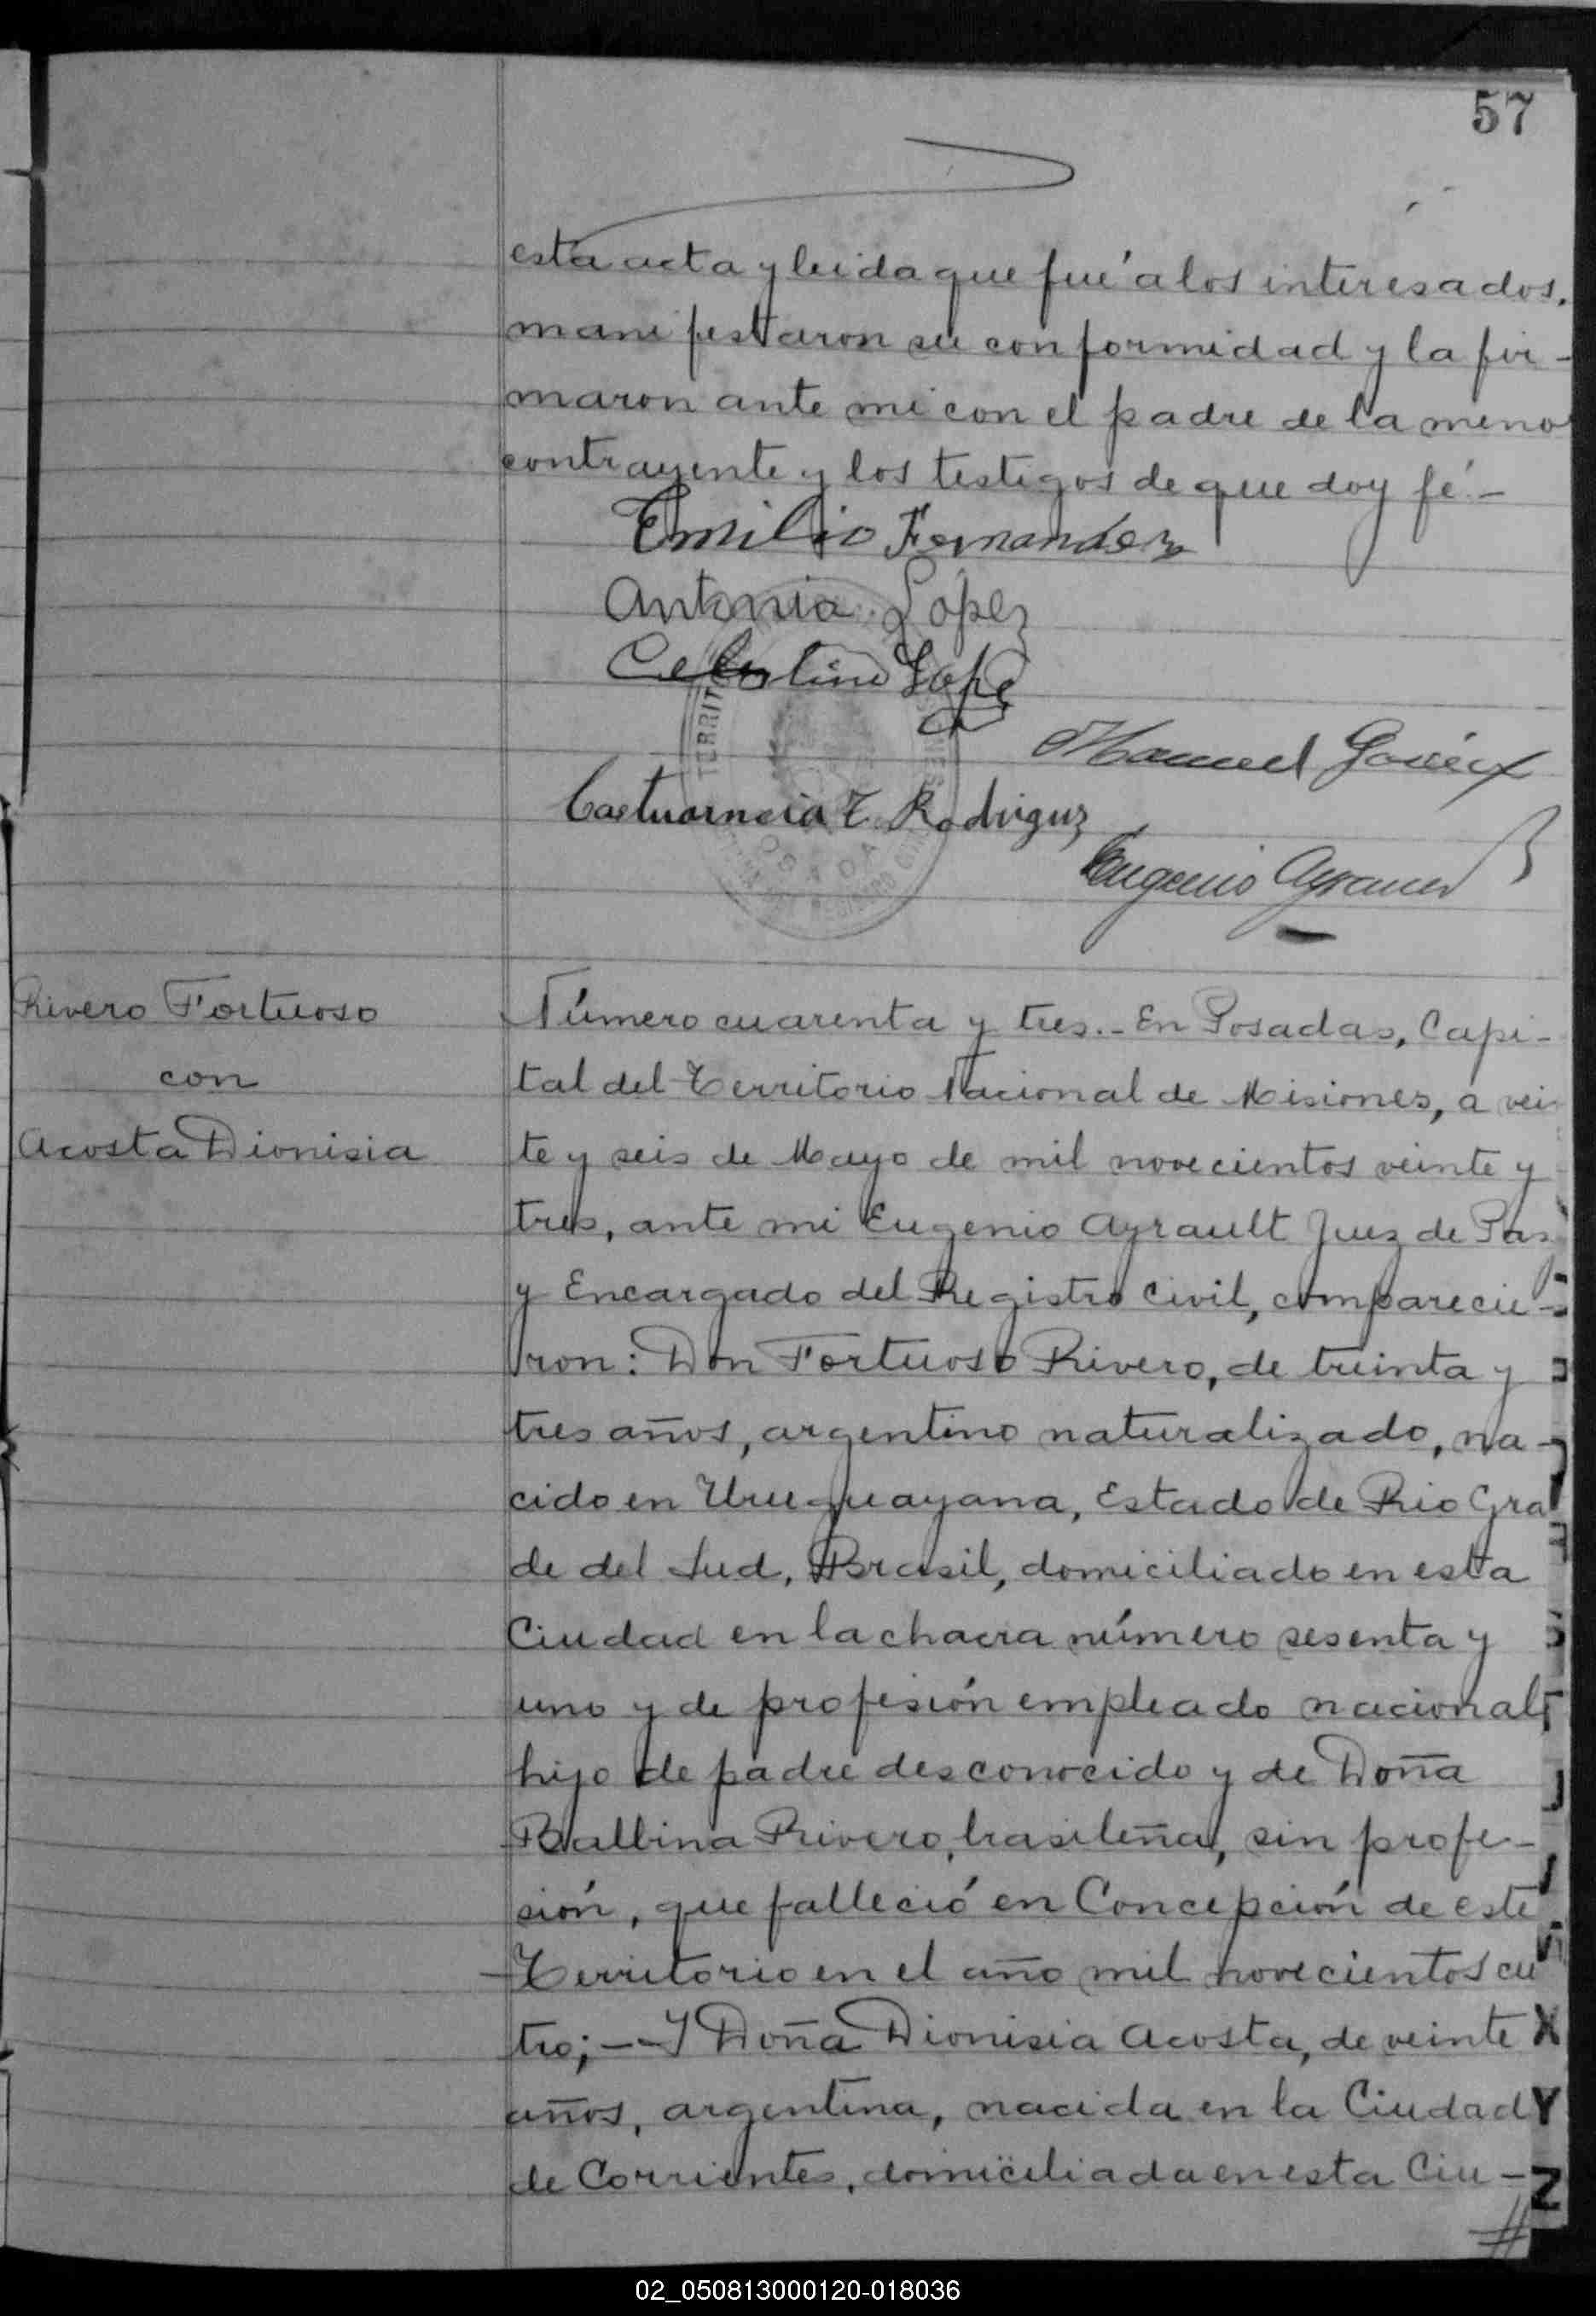 57
esta acta y leida que fué a los interesados,
manifestaron su conformidad y la fir-
maron ante mi con el padre de la meno
contrayente y los testigos de que doy fé.-
Emilio Fernandez
Antonia Lopez
Celestino Lope
Manuel
T. Rodriguz
Eugenio Ayrault
Rivero Fortuoso
con
Acosta Dionisia
Número cuarenta y tres.- En Posadas, Capi-
tal del Territorio Nacional de Misiones, a vein
te y seis de Mayo de mil novecientos veinte y
tres, ante mi Eugenio Ayrault Juez de Paz
y Encargado del Registro Civil, comparecie-
ron: Don Fortuoso Rivero, de treinta y
tres años, argentino naturalizado, na-
cido en Uruguayana, Estado de Rio Gra
de del Sud, Brasil, domiciliado en esta
Ciudad en la chacra número sesenta y
uno y de profesión empleado nacional,
hijo de padre desconocido y de Doña
Balbina Rivero, brasileña, sin profe-
sión, que falleció en Concepción de este
Territorio en el año mil novecientos cu
tro;-- Y Doña Dionisia Acosta, de veinte
años, argentina, nacida en la Ciudad
de Corrientes, domiciliada en esta Ciu-
X
Y
Z
02_050813000120-018036